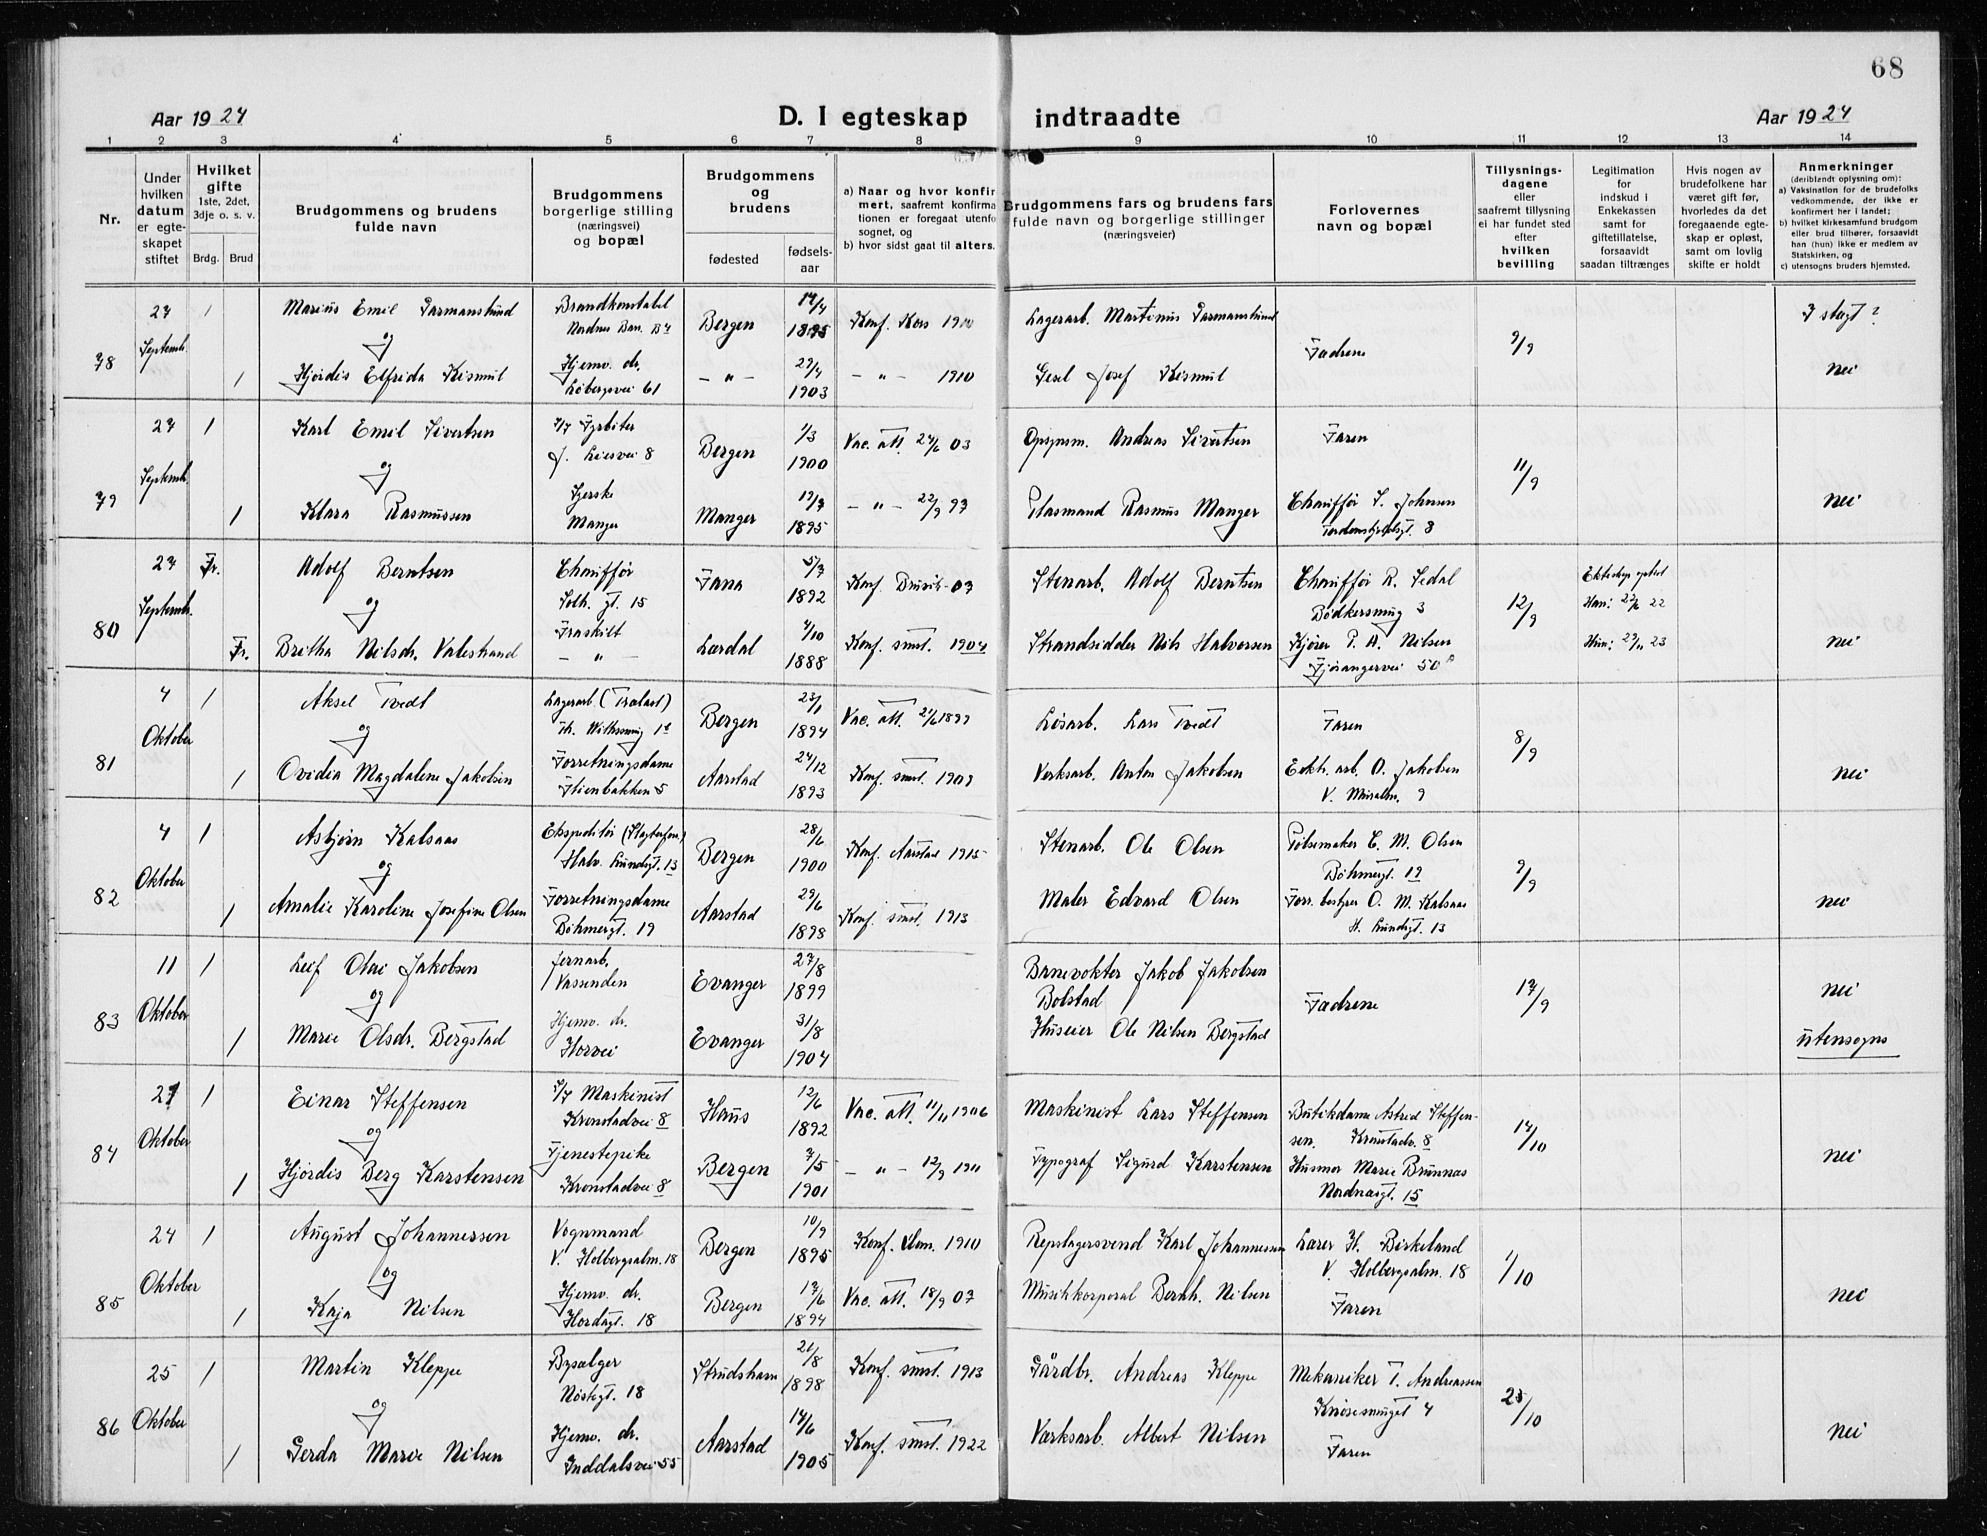 68
Aar 1924
D. I egteskap indtraadte
Aar 1924
1 2 3 4 5 6 7 8 9 10 11 12 13 14
Nr.
Under hvilken datum er egte-skapet stiftet
Hvilket gifte 1ste, 2det, 3dje o. s. v.
Brdg. Brud
Brudgommens og brudens fulde navn
Brudgommens borgerlige stilling (næringsvei) og bopæl
Brudgommens og brudens
fødested fødsels-aar
a) Naar og hvor konfir
mert, saafremt konfirma
tionen er foregaat utenfo
sognet, og
b) hvor sidst gaat til alters.
Brudgommens fars og brudens fars
fulde navn og borgerlige stillinger
(næringsveier)
Forlovernes
navn og bopæl
Tillysnings-dagene
eller
saafremt tillysning
ei har fundet sted
efter
hvilken
bevilling
Legitimation
for
indskud i
Enkekassen
samt for
giftetillatelse,
forsaavidt
saadan tiltrænges
Hvis nogen av
brudefolkene har
været gift før,
hvorledes da det
foregaaende egte-
skap er opløst,
samt om lovlig
skifte er holdt
Anmerkninger
(deriblandt oplysning om):
a) Vaksination for de brudefolks
vedkommende, der ikke er
konfirmert her i landet;
b) hvilket kirkesamfund brudgom
eller brud tilhører, forsaavidt
han (hun) ikke er medlem av
Statskirken, og
c) utensogns bruders hjemsted.
78 27 Septemb. 1 Marius Emil Parmanstund Brandkonstabel Bergen 14/4 1895 Konf. Kors 1910 Lagerarb. Martinus Parmanstund Fadrene 9/9 I slegt? nei
og
1 Hjördis Elfrida Kismul Hjemv. dr. Løbergsvei 61 – " – 29/4 1903 – " – Josef Kismul
79 27 Septemb. 1 Karl Emil Sivertsen Fyrbøter Bergen 1/3 1900 Vac. att. 24/6 03 Opsynsm. Andreas Sivertsen Faren 11/9 nei
og
1 Klara Rasmussen Manger Manger 19/7 1895 – " – 22/9 97 Plasmand Rasmus Manger Chauffør S. Johnsen Tordenskjoldsgt. 8
80 27 Septemb. Fr. Adolf Berntsen Chauffør Solh. gt. 15 Fana 5/7 1892 Konf. 07 Stenarb. Adolf Berntsen Chauffør R. Sedal Bødkersmug 3 12/9 Han: 22/6 22 nei
og
Fr. Britha Nilsdr. Valestrand Fraskilt – " – Lærdal 4/10 1888 Konf. smst. 1904 Strandsidder Nils Halvorsen Kjører P. A. Nilsen Fjösangervei 50A Hun: 29/11 23
81 4 Oktober 1 Aksel Tvedt Lagerarb. (Tralast) Bergen 23/1 1894 Vac. att. 24/6 1899 Løsarb. Lars Tvedt Faren 8/9 nei
og
1 Ovidia Magdalene Jakobsen Forretningsdame Stienbakken 5 Aarstad 24/12 1893 Konf. smst. 1909 Verksarb. Anton Jakobsen arb. O. Jakobsen V. Muralm. 9
82 4 Oktober 1 Asbjørn Kalsaas Ekspeditør Halv. Lundsgt. 13 Bergen 28/6 1900 Konf. Aarstad 1915 Stenarb. Ole Olsen Pølsemaker E. M. Olsen Bøhmergt. 19 9/9 nei
og
1 Amalie Karoline Josefine Olsen Forretningsdame Bøhmergt. 19 Aarstad 29/6 1898 Konf. smst. 1913 Maler Edvard Olsen Forr. bestyrer O. M. Kalsaas H. Lundsgt. 13
83 11 Oktober 1 Leif Olai Jakobsen Jernarb. Vassenden Evanger 27/8 1899 Banevokter Jakob Jakobsen Bolstad Fadrene 17/9 nei
og
1 Marie Olsdr. Bergstad Hjemv. dr. Horvei Evanger 31/8 1904 Huseier Ole Nilsen Bergstad utensogns
84 21 Oktober 1 Einar Steffensen Maskinist Kronstadvei 8 Haus 12/6 1892 Vac. att. 11/11 1906 Maskinist Lars Steffensen Butikdame Astrid Steffen-sen. Kronstadv. 8 14/10 nei
og
1 Hjördis Berg Karstensen Tjenestepike Kronstadvei 8 Bergen 7/5 1901 – " – 12/9 1911 Typograf Sigurd Karstensen Husmor Marie Brunnas Nordnesgt. 15
85 24 Oktober 1 August Johannessen Vognmand V. Holbergsalm. 18 Bergen 10/9 1895 Konf. Dom. 1910 Repslagersvend Karl Johannessen Lærer H. Birkeland V. Holbergsalm. 18 1/10 nei
og
1 Kaja Nilsen Hjemv. dr. Hordagt. 18 Bergen 17/6 1894 Vac. att. 18/9 07 Musikkorporal Bernh. Nilsen Faren
86 25 Oktober 1 Martin Kleppe Bysælger Nøstegt. 18 Strudshavn 21/8 1898 Konf. smst. 1913 Gårdbr. Andreas Kleppe Mekaniker T. Andreassen Knøsesmuget 4 25/10 nei
og
1 Gerda Marie Nilsen Hjemv. dr. Inddalsvei 55 Aarstad 14/6 1905 Konf. smst. 1922 Værksarb. Albert Nilsen Faren